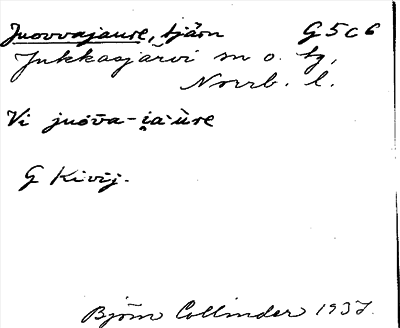 Juovvajaure, tjärn G5c6
Jukkasjärvi sn o. tg,
Norrb. l.
Vi juòva-i̯aùre
G Kivij.
Björn Collinder 1937.